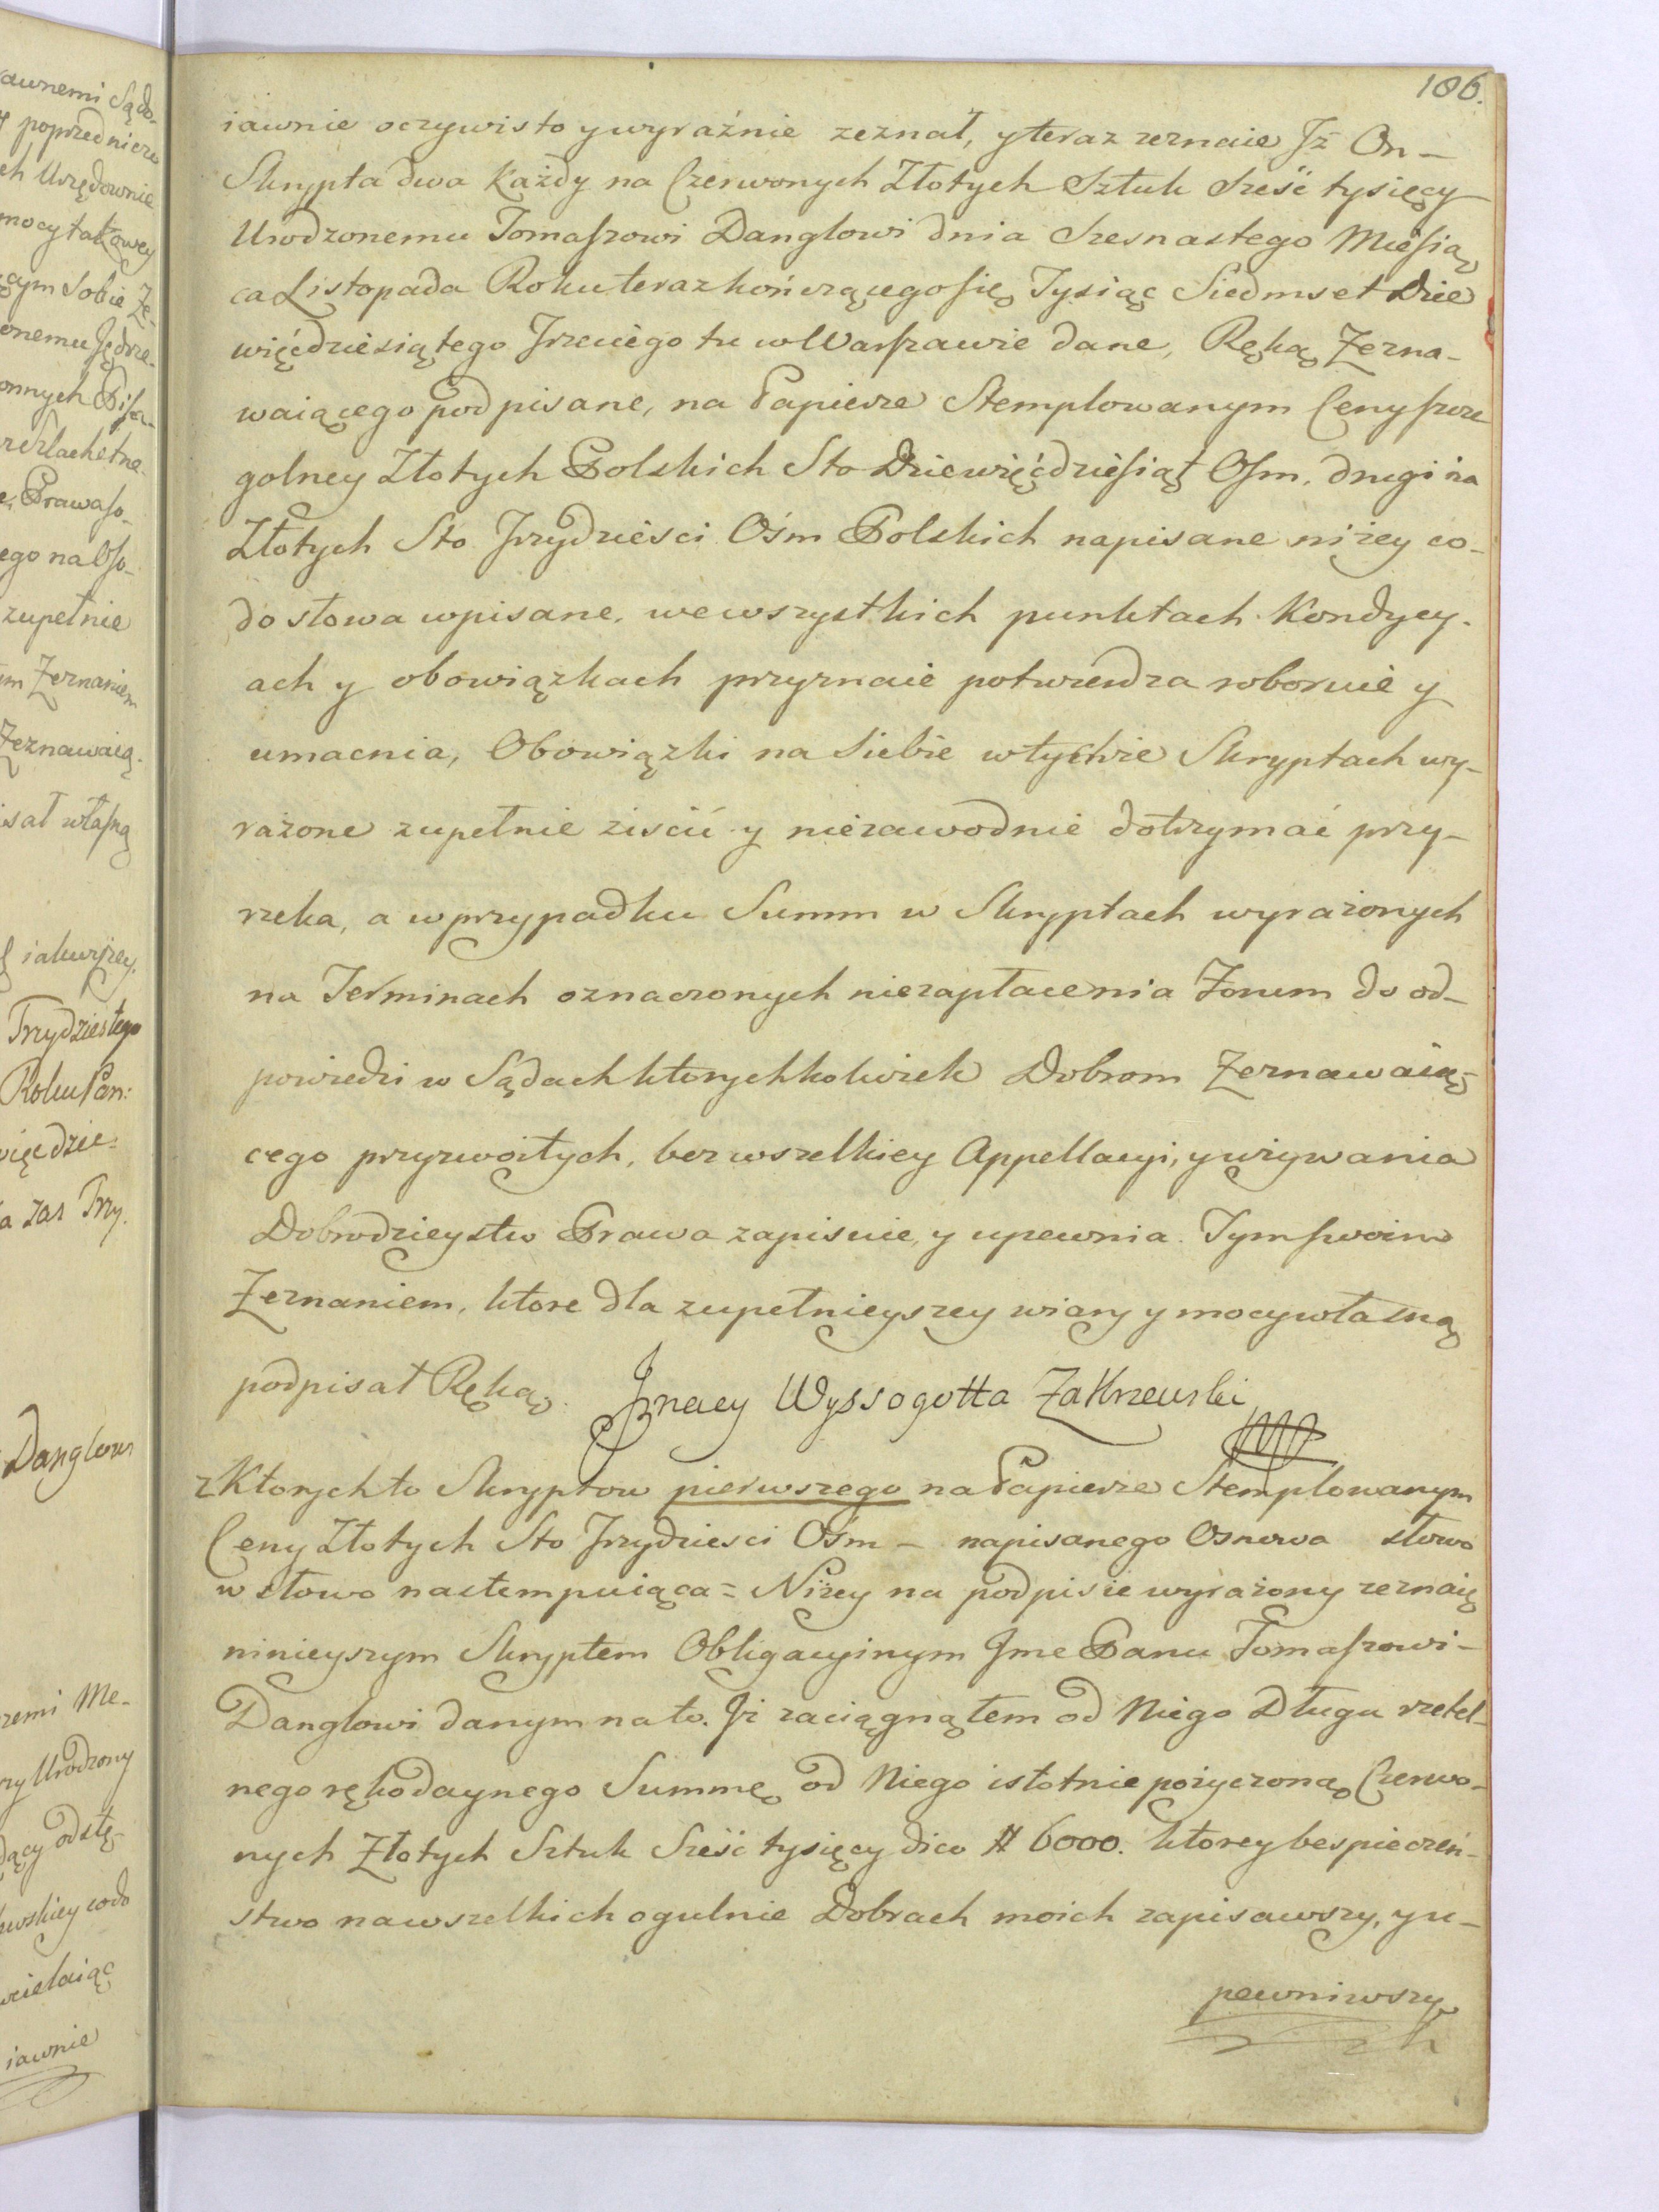 186.
iawnie oczywisto y wyraźnie zeznał, y teraz zeznaie Jż On –
Skrypta dwa Każdy na Czerwonych Złotych Sztuk sześć tysięcy
Urodzonemu Tomaszowi Danglowi dnia Szesnastego Miesią
ca Listopada Roku teraz kończącego się Tysiąc Siedmset Dzie
więćdziesiątego Trzeciego tu w Warszawie dane, Ręką Zezna-
waiącego podpisane, na Papierze Stemplowanym Ceny szcze
golney Złotych Polskich Sto Dziewięćdziesiąt Osm, drugi na
Złotych Sto Trzydziesci Ośm Polskich napisane niżey co-
do słowa wpisane, we wszystkich punktach Kondycy-
ach y obowiązkach przyznaie potwierdza roboruie y
umacnia, Obowiązki na siebie w tychże Skryptach wy-
rażone zupełnie ziścić y niezawodnie dotrzymać przy-
rzeka, a w przypadku Summ w Skryptach wyrażonych
na Terminach oznaczonych niezapłacenia Forum do od-
powiedzi w Sądach ktorychkolwiek Dobrom Zeznawaią-
cego przyzwoitych, bez wszelkiey Appellacyi, y używania
Dobrodzieystw Prawa zapisuie, y upewnia. Tym swoim
Zeznaniem, ktore dla zupełnieyszey wiary y mocy własną
podpisał Ręką. Jgnacy Wyssogotta Zakrzewski
z Ktorych to Skryptow pierwszego na Papierze Stemplowanym
Ceny Złotych Sto Trzydziesci Ośm – napisanego Osnowa słowo
w słowo nastempuiąca = Niżey na podpisie wyrażony zeznaię
ninieyszym Skryptem Obligacyinym Jme Panu Tomaszowi –
Danglowi danym na to. Jż zaciągnąłem od Niego Długu rzetel-
nego rękodaynego Summę od Niego istotnie pożyczoną Czerwo-
nych Złotych Sztuk Sześć tysięcy dico # 6000. ktorey bespieczeń-
stwo na wszelkich ogulnie Dobrach moich zapisawszy, y u-
pewniwszy